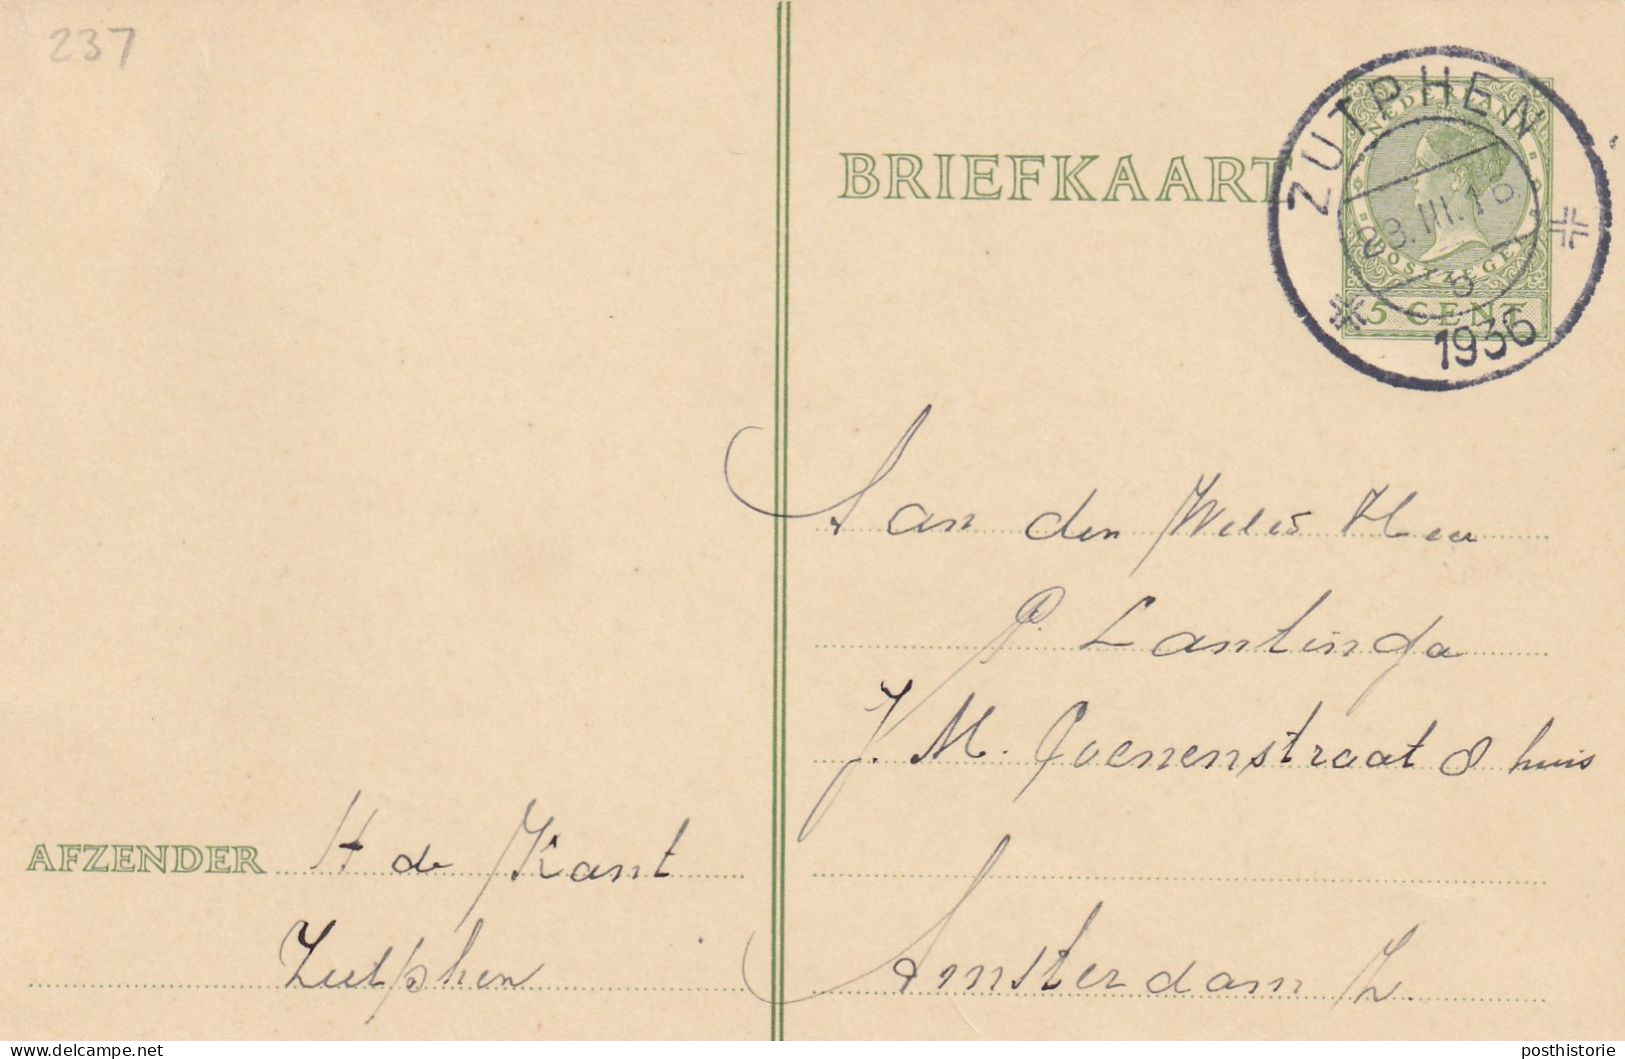 237
BRIEFKAART
NEDERLAND
POSTZEGEL
5 CENT
ZUTPHEN
1936
Aan den Weled Heer
P. Lantinga
J. M. Coenenstraat 8 huis
Amsterdam Z.
AFZENDER H de Kant
Zutphen
delcampe.net
posthistorie